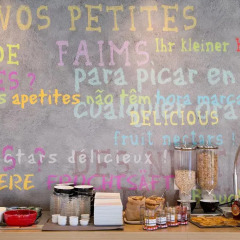 VOS PETITES
DE FAIMS Ihr kleiner
ES ? para picar en
s apetites não têm hora marca
DELICIOUS
fruit nectars !
ctars délicieux !
ERE FRUCHTSÄFT